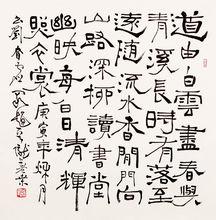 道由白雲盡春與
青溪長時有落至
遠隨流水香開門向
山路深柳讀書堂
幽映每白日清輝
照衣裳 庚寅年 月
劉